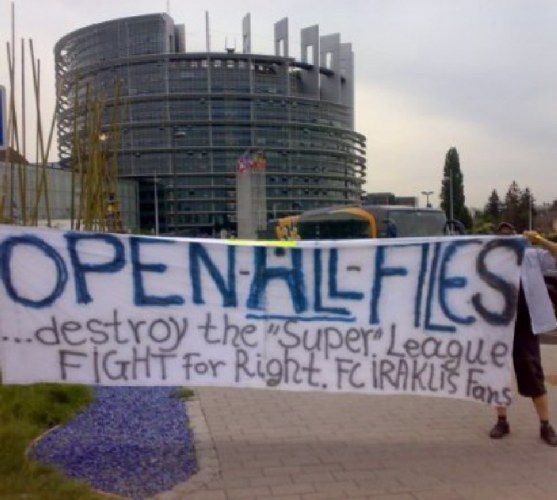 OPEN-ALL-FILES
...destroy the "Super" League
FIGHT for Right. FC iRAKLiS Fans